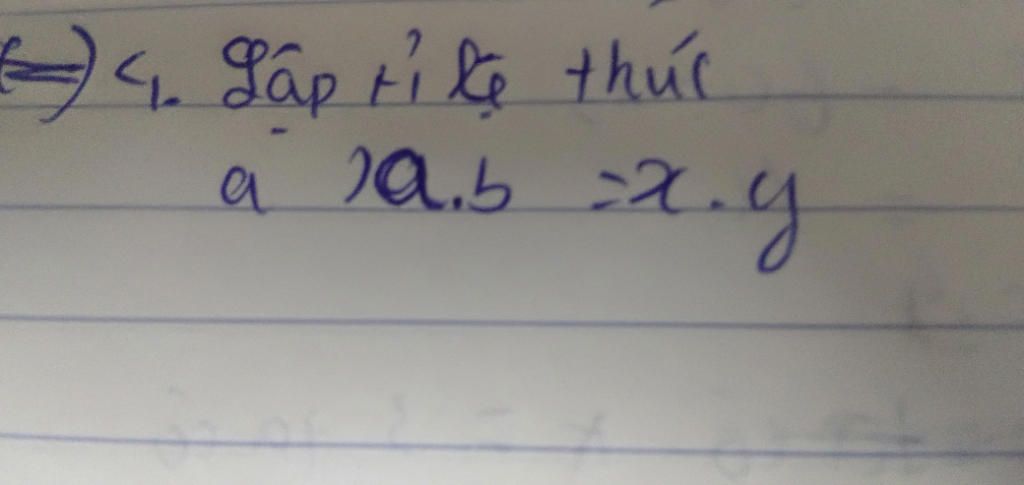 C1. Lập tỉ lệ thức
a) a.b = x.y